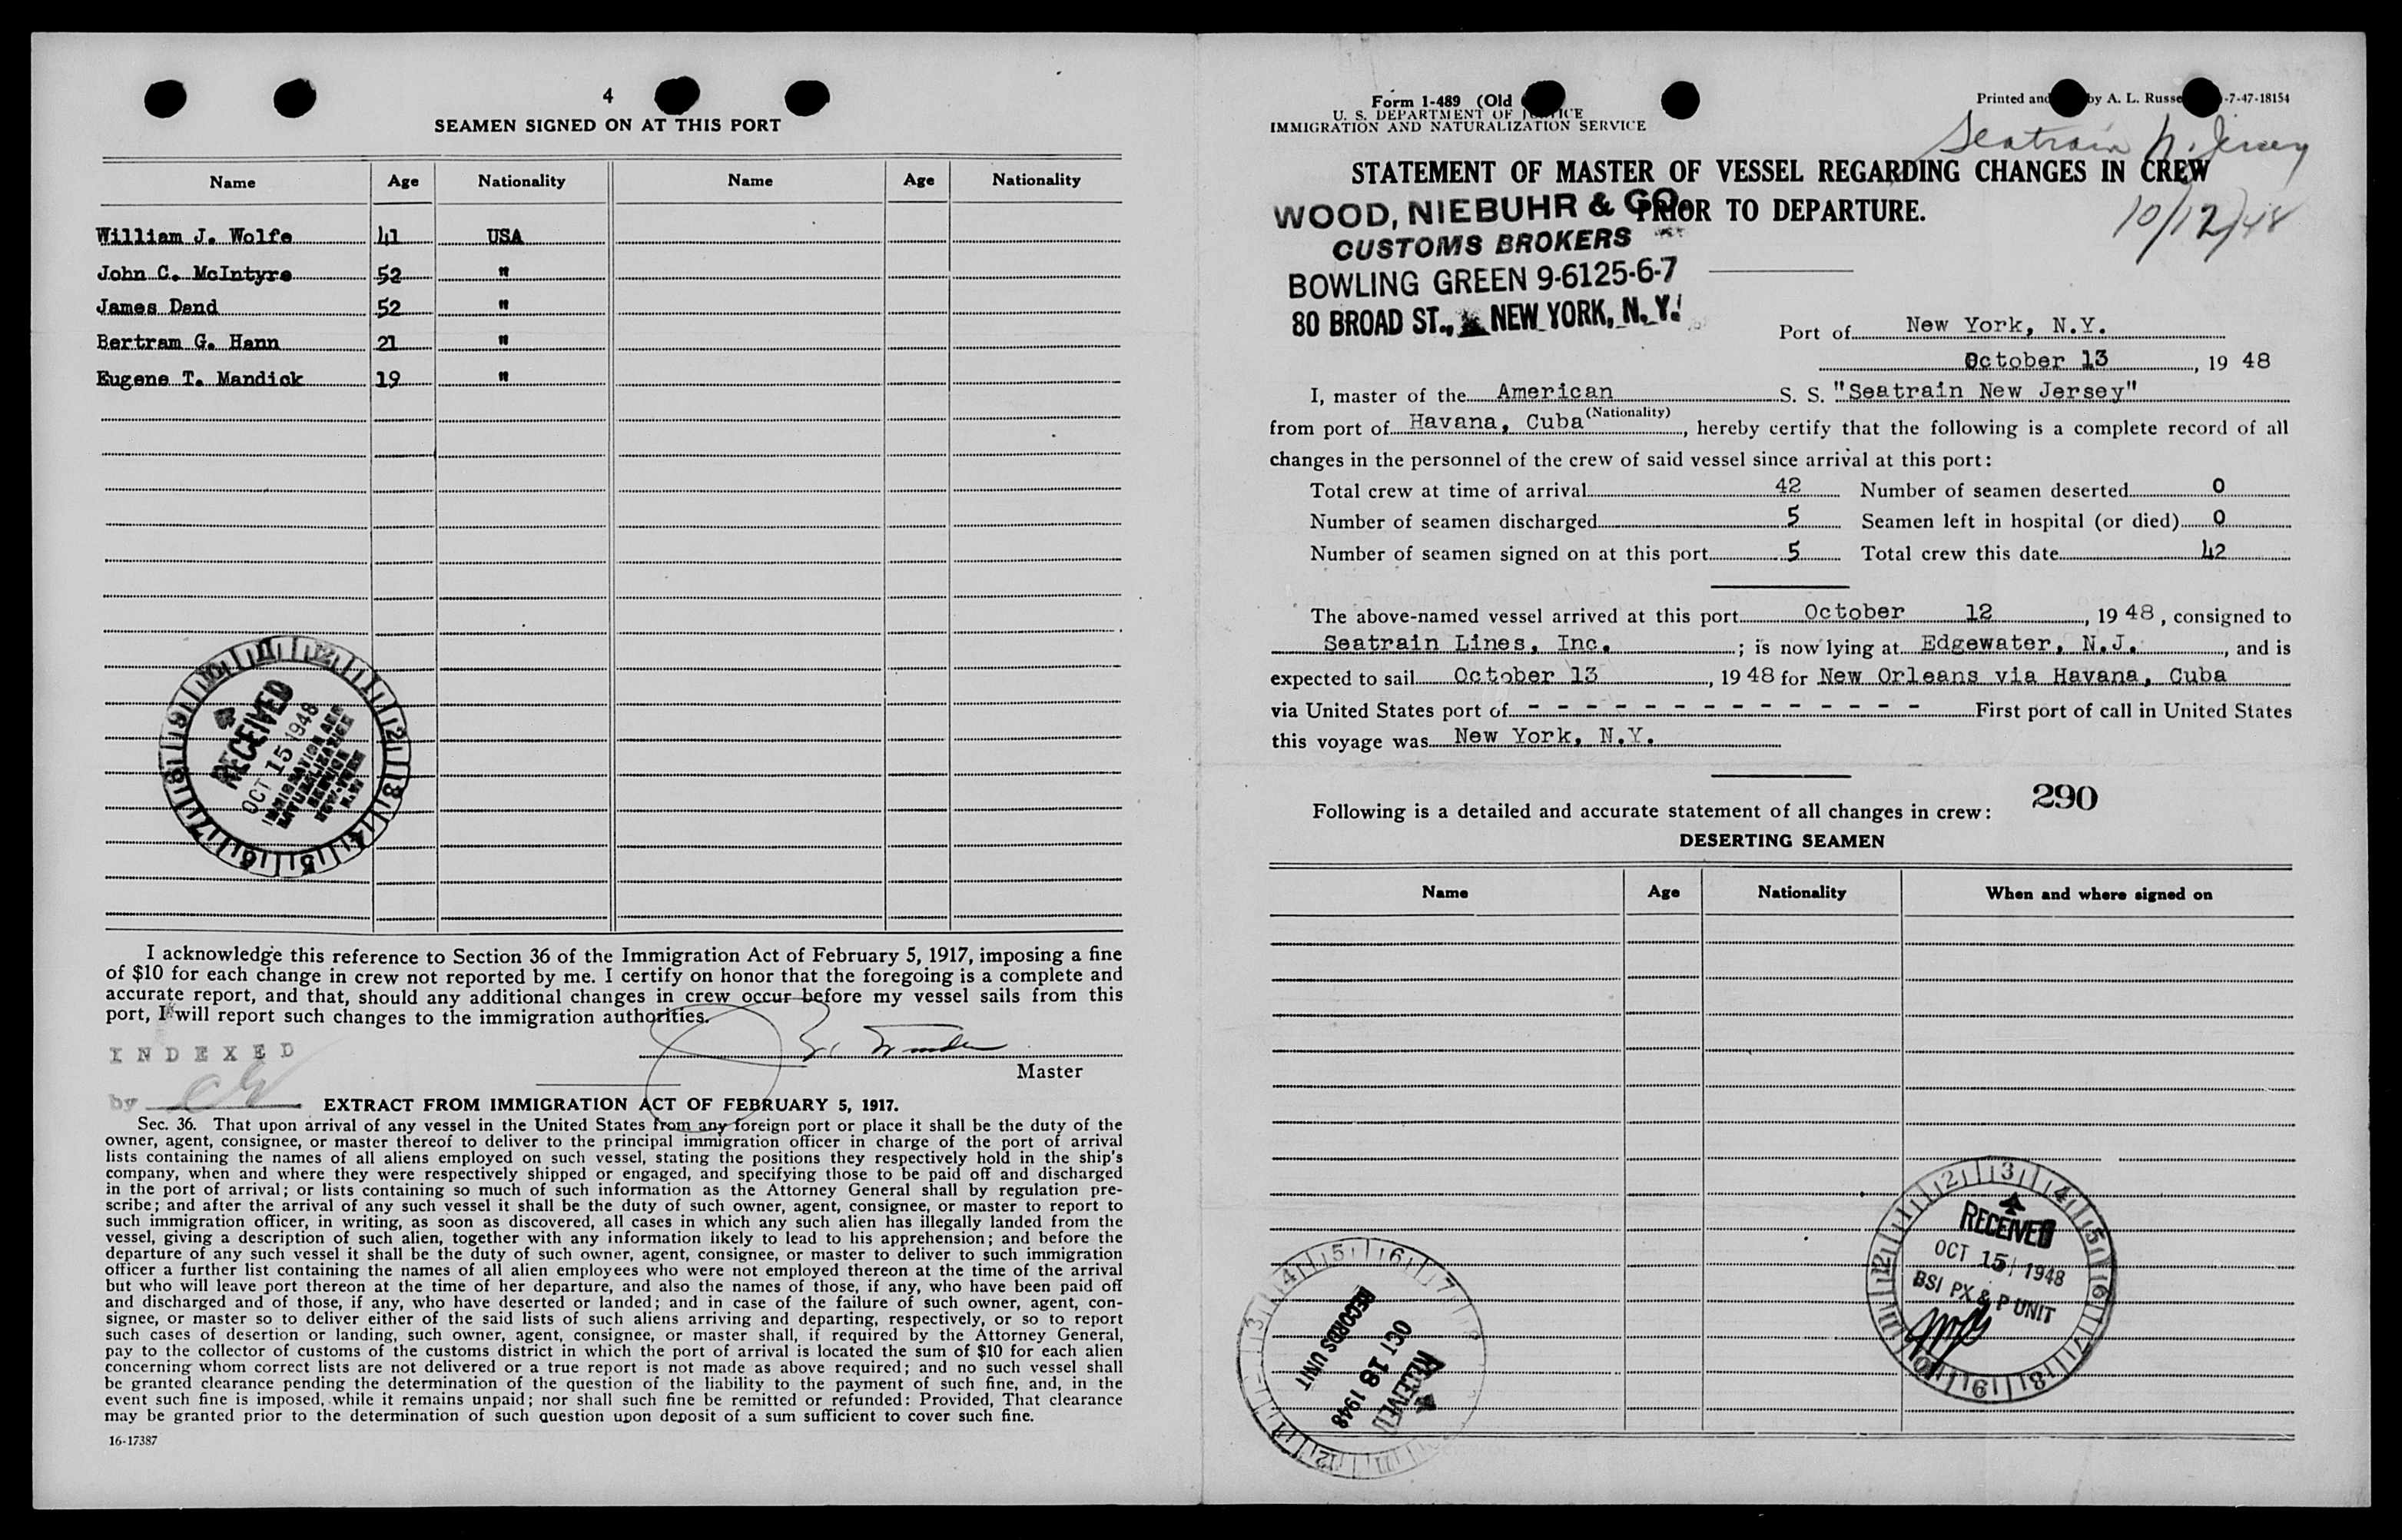 4
SEAMEN SIGNED ON AT THIS PORT
Name Age Nationality Name Age Nationality
William J. Wolfe 41 USA
John C. McIntyre 52 "
James Dand 52 "
Bertram G. Hann 21 "
Eugene T. Mandick 19 "
RECEIVED
OCT 15 1948
IMMIGRATION AND
NATURALIZATION
SERVICE
NEW YORK
N.Y.
I acknowledge this reference to Section 36 of the Immigration Act of February 5, 1917, imposing a fine
of $10 for each change in crew not reported by me. I certify on honor that the foregoing is a complete and
accurate report, and that, should any additional changes in crew occur before my vessel sails from this
port, I will report such changes to the immigration authorities.
INDEXED
Master
by
EXTRACT FROM IMMIGRATION ACT OF FEBRUARY 5, 1917.
Sec. 36. That upon arrival of any vessel in the United States from any foreign port or place it shall be the duty of the
owner, agent, consignee, or master thereof to deliver to the principal immigration officer in charge of the port of arrival
lists containing the names of all aliens employed on such vessel, stating the positions they respectively hold in the ship's
company, when and where they were respectively shipped or engaged, and specifying those to be paid off and discharged
in the port of arrival; or lists containing so much of such information as the Attorney General shall by regulation pre-
scribe; and after the arrival of any such vessel it shall be the duty of such owner, agent, consignee, or master to report to
such immigration officer, in writing, as soon as discovered, all cases in which any such alien has illegally landed from the
vessel, giving a description of such alien, together with any information likely to lead to his apprehension; and before the
departure of any such vessel it shall be the duty of such owner, agent, consignee, or master to deliver to such immigration
officer a further list containing the names of all alien employees who were not employed thereon at the time of the arrival
but who will leave port thereon at the time of her departure, and also the names of those, if any, who have been paid off
and discharged and of those, if any, who have deserted or landed; and in case of the failure of such owner, agent, con-
signee, or master so to deliver either of the said lists of such aliens arriving and departing, respectively, or so to report
such cases of desertion or landing, such owner, agent, consignee, or master shall, if required by the Attorney General,
pay to the collector of customs of the customs district in which the port of arrival is located the sum of $10 for each alien
concerning whom correct lists are not delivered or a true report is not made as above required; and no such vessel shall
be granted clearance pending the determination of the question of the liability to the payment of such fine, and, in the
event such fine is imposed, while it remains unpaid; nor shall such fine be remitted or refunded: Provided, That clearance
may be granted prior to the determination of such question upon deposit of a sum sufficient to cover such fine.
16-17387
Form 1-489 (Old
U. S. DEPARTMENT OF JUSTICE
IMMIGRATION AND NATURALIZATION SERVICE
Printed and by A. L. Russe -7-47-18154
Seatrain N. Jersey
10/12/48
STATEMENT OF MASTER OF VESSEL REGARDING CHANGES IN CREW
PRIOR TO DEPARTURE.
WOOD, NIEBUHR & CO.
CUSTOMS BROKERS
BOWLING GREEN 9-6125-6-7
80 BROAD ST., NEW YORK, N.Y.
Port of New York, N.Y.
October 13, 19 48
I, master of the American S. S. "Seatrain New Jersey"
(Nationality)
from port of Havana, Cuba, hereby certify that the following is a complete record of all
changes in the personnel of the crew of said vessel since arrival at this port:
Total crew at time of arrival 42 Number of seamen deserted 0
Number of seamen discharged 5 Seamen left in hospital (or died) 0
Number of seamen signed on at this port 5 Total crew this date 42
The above-named vessel arrived at this port October 12, 19 48, consigned to
Seatrain Lines, Inc. ; is now lying at Edgewater, N.J., and is
expected to sail October 13, 19 48 for New Orleans via Havana, Cuba
via United States port of - - - - - - - - - - - - - - First port of call in United States
this voyage was New York, N.Y.
290
Following is a detailed and accurate statement of all changes in crew:
DESERTING SEAMEN
Name Age Nationality When and where signed on
RECEIVED
OCT 15 1948
BSI PX & P UNIT
RECEIVED
OCT 18 1948
RECORDS UNIT